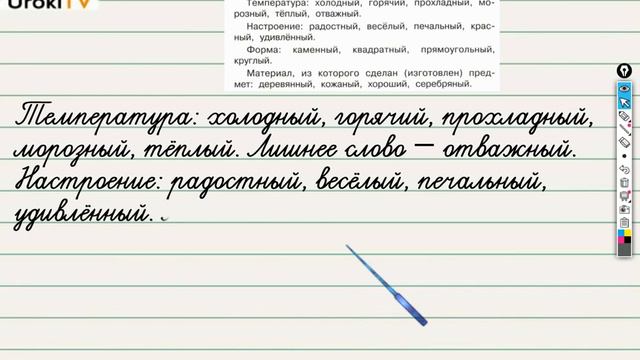 UrokiTV
Температура: холодный, горячий, прохладный, мо-
розный, тёплый, отважный.
Настроение: радостный, весёлый, печальный, крас-
ный, удивлённый.
Форма: каменный, квадратный, прямоугольный,
круглый.
Материал, из которого сделан (изготовлен) пред-
мет: деревянный, кожаный, хороший, серебряный.
Температура: холодный, горячий, прохладный,
морозный, тёплый. Лишнее слово – отважный.
Настроение: радостный, весёлый, печальный,
удивлённый.